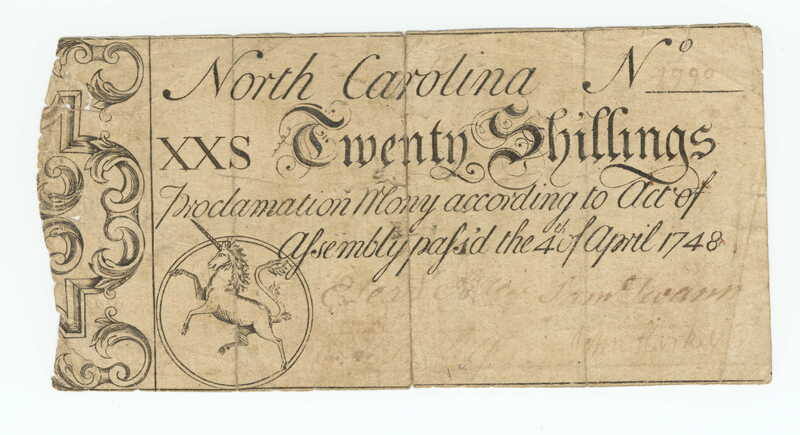 North Carolina No 1790
XXS Twenty Shillings
Proclamation Mony according to Act of
Assembly pass'd the 4th of April 1748
Saml Swann